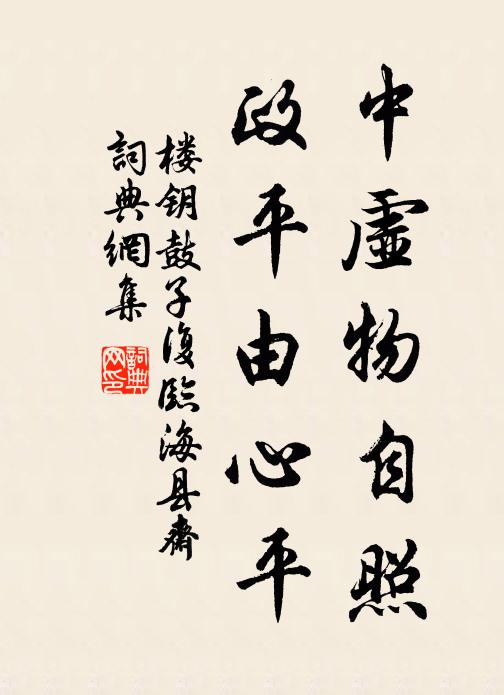 中虚物自照
政平由心平
楼钥鼓子復臨海县齋
詞典網集
詞典网印